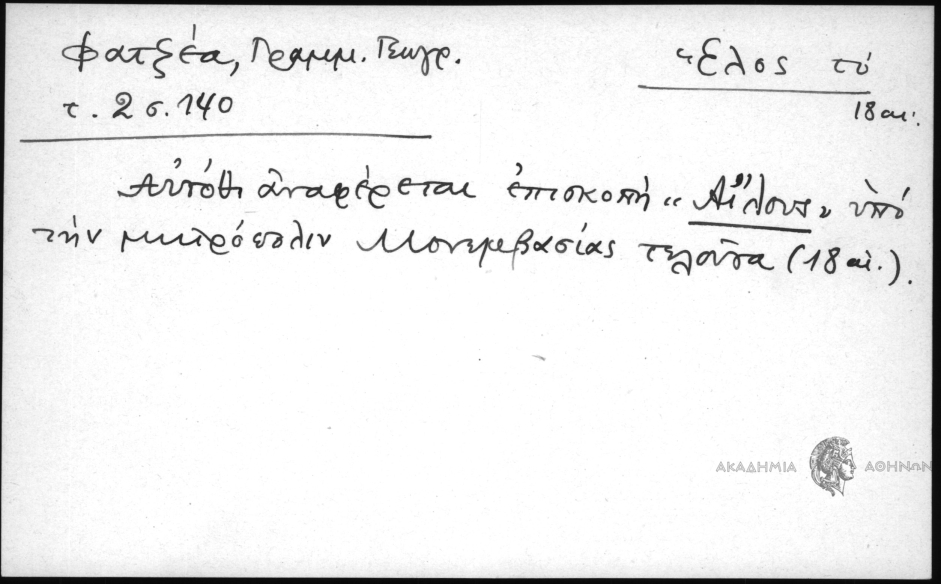 Φατζέα, Γραμμ. Γεωγρ.
τ. 2 σ. 140
Ἕλος τό
18 αι.
Αὐτόθι ἀναφέρεται ἐπισκοπή « Αἵλους » ὑπό
τήν μητρόπολιν Μονεμβασίας τελοῦσα (18 αἰ.).
ΑΚΑΔΗΜΙΑ ΑΘΗΝΩΝ